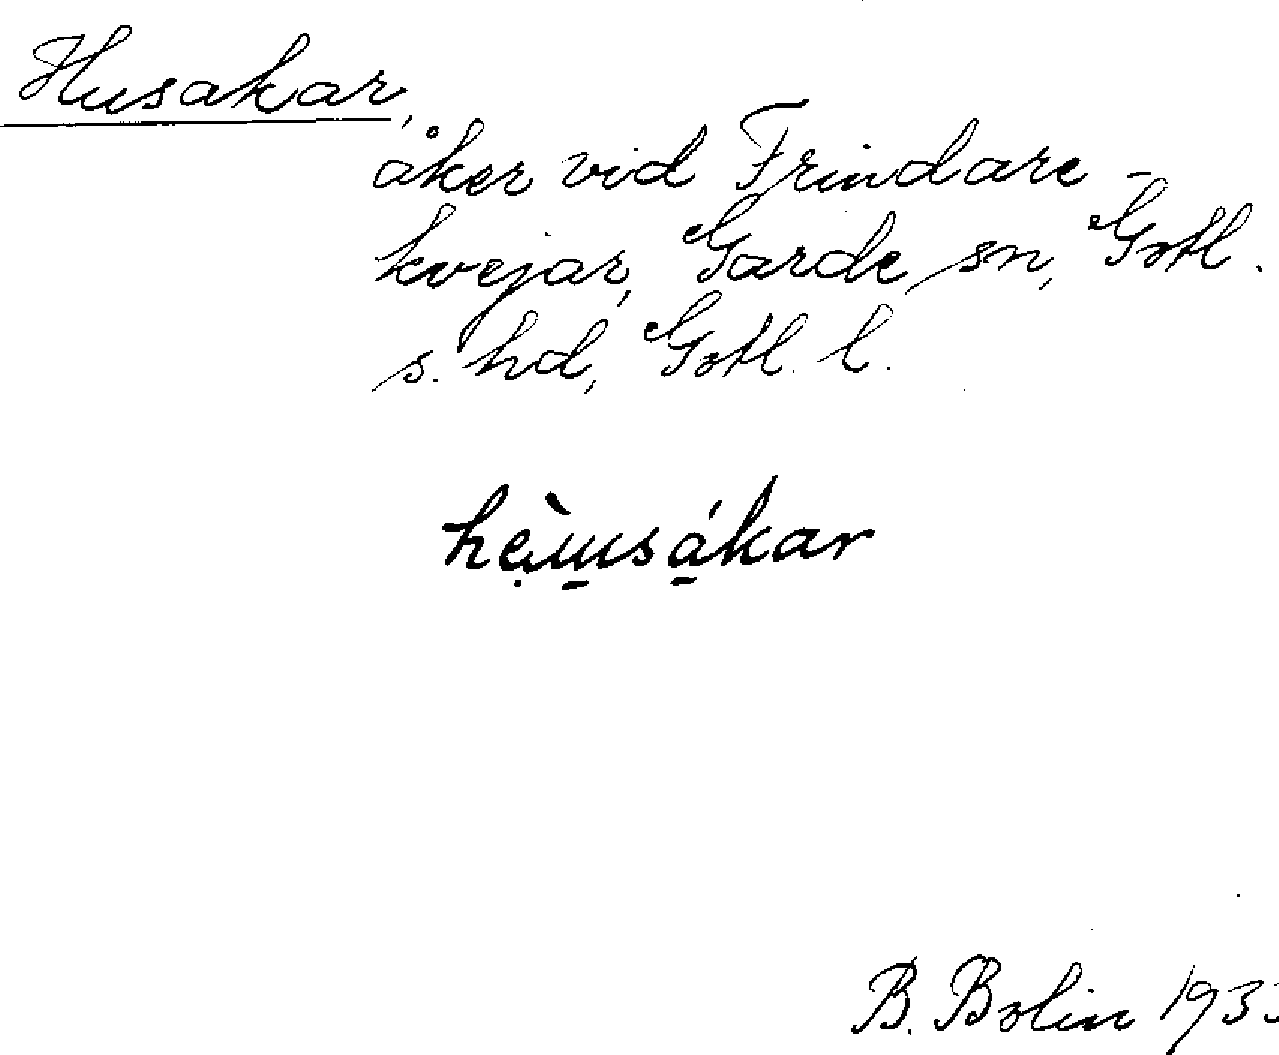 Husakar,
åker vid Frindare-
kvejar, Garde sn, Gotl.
s. hd, Gotl. l.
B. Bolin 1933